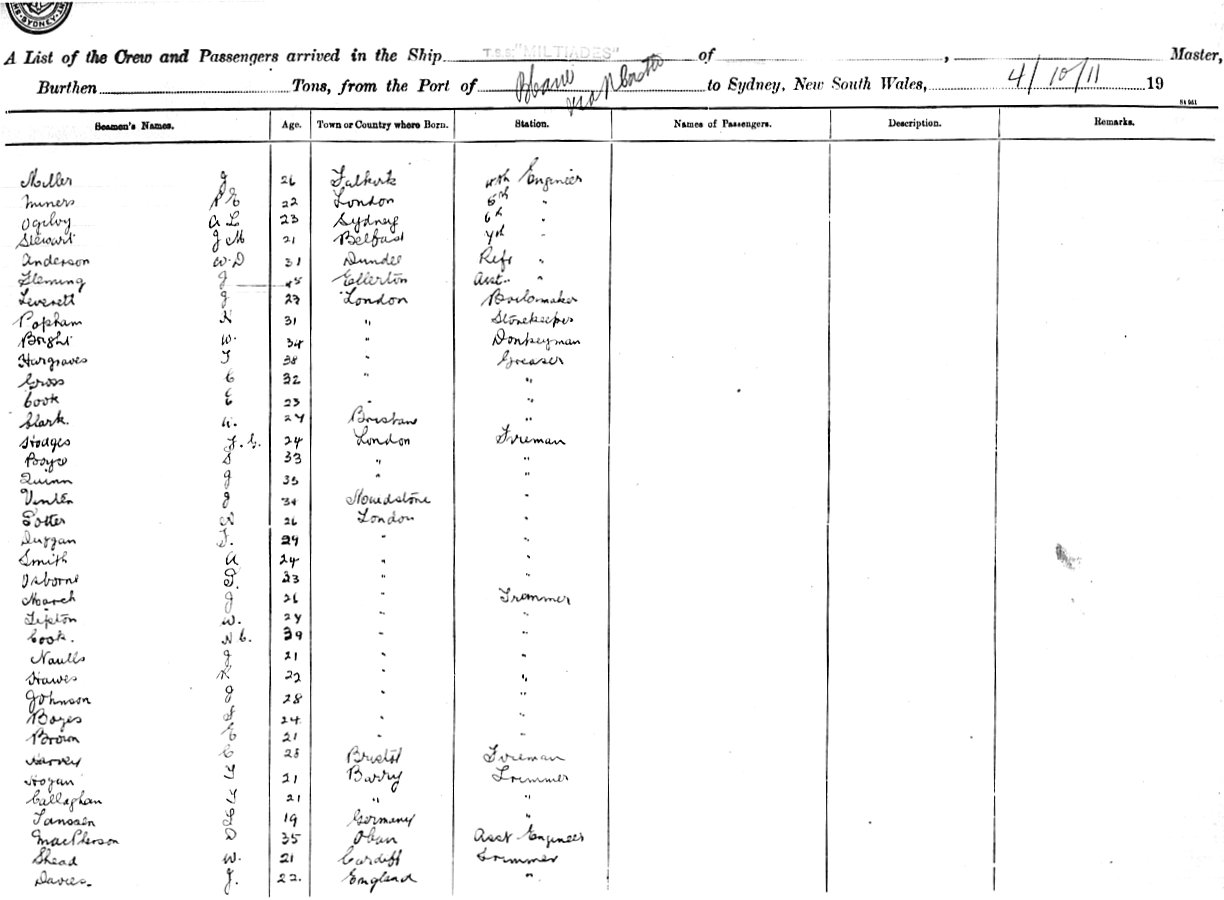 SYDNEY
A List of the Crew and Passengers arrived in the Ship T.S.S. "MILTIADES" of , Master,
Burthen Tons, from the Port of Bbane via to Sydney, New South Wales, 4/10/11 19
Seamen's Names. Age. Town or Country where Born. Station. Names of Passengers. Description. Remarks.
Miller J 26 Falkirk 4th Engineer
Miners P E 22 London 5th "
Ogilvy A L 23 Sydney 6th "
Stewart J M 21 Belfast 7th "
Anderson W. D 31 Dundee Refr "
Fleming J 45 Ellerton Asst. "
Leverett J 23 London Boilermaker
Popham K 31 " Storekeeper
Bright W. 34 " Donkeyman
Hargraves T 38 " Greaser
Gross C 32 " "
Cook E 23 " "
Clark. A. 27 Brisbane "
Hodges J. G. 24 London Fireman
S 33 " "
Quinn J 35 " "
Venten J 34 Maidstone "
Potter 26 London "
Duggan T. 29 " "
Smith A 24 " "
Osborne 23 " "
March J 26 " Trimmer
Lipton W. 27 " "
Cook. N C. 39 " "
Naulls J 21 " "
Hawes K 22 " "
Johnson J 28 " "
Boyes F 24 " "
Brown E 21 " "
Harvey C 28 Bristol Fireman
Hogan 21 Barry Trimmer
Callaghan 21 " "
Janssen 19 Germany "
MacPherson D 35 Oban Asst Engineer
Shead W. 21 Cardiff Trimmer
Davies. J. 22. England "